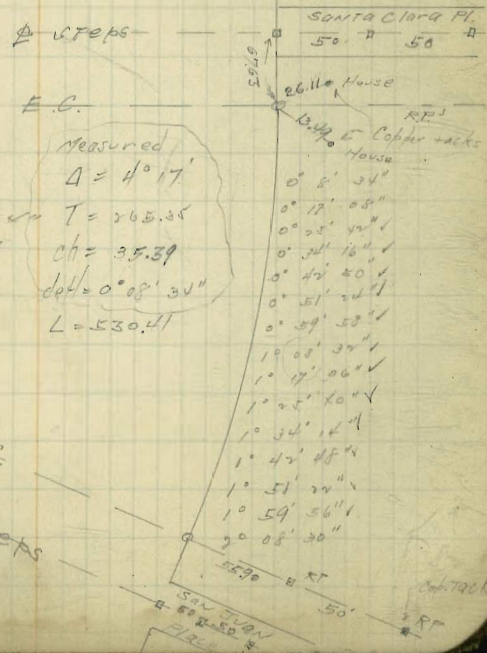 SANTA Clara Pl.
₵ steps
50' 50
67.63
26.11 House
E.C.
RPs
13.49
Copper tacks
House
Measured
Δ = 4° 17'
T = 265.35
ch = 35.39
defl = 0° 08' 34"
L = 530.41
0° 8' 34"
0° 17' 08"
0° 25' 42" ✓
0° 34' 16" ✓
0° 42' 50" ✓
0° 51' 24" ✓
0° 59' 58" ✓
1° 08' 32" ✓
1° 17' 06" ✓
1° 25' 40" ✓
1° 34' 14" ✓
1° 42' 48" ✓
1° 51' 22" ✓
1° 59' 56" ✓
2° 08' 30"
eps
55.90
RP
50'
Cop. Tack
RP
SAN JUAN
50 50
Place